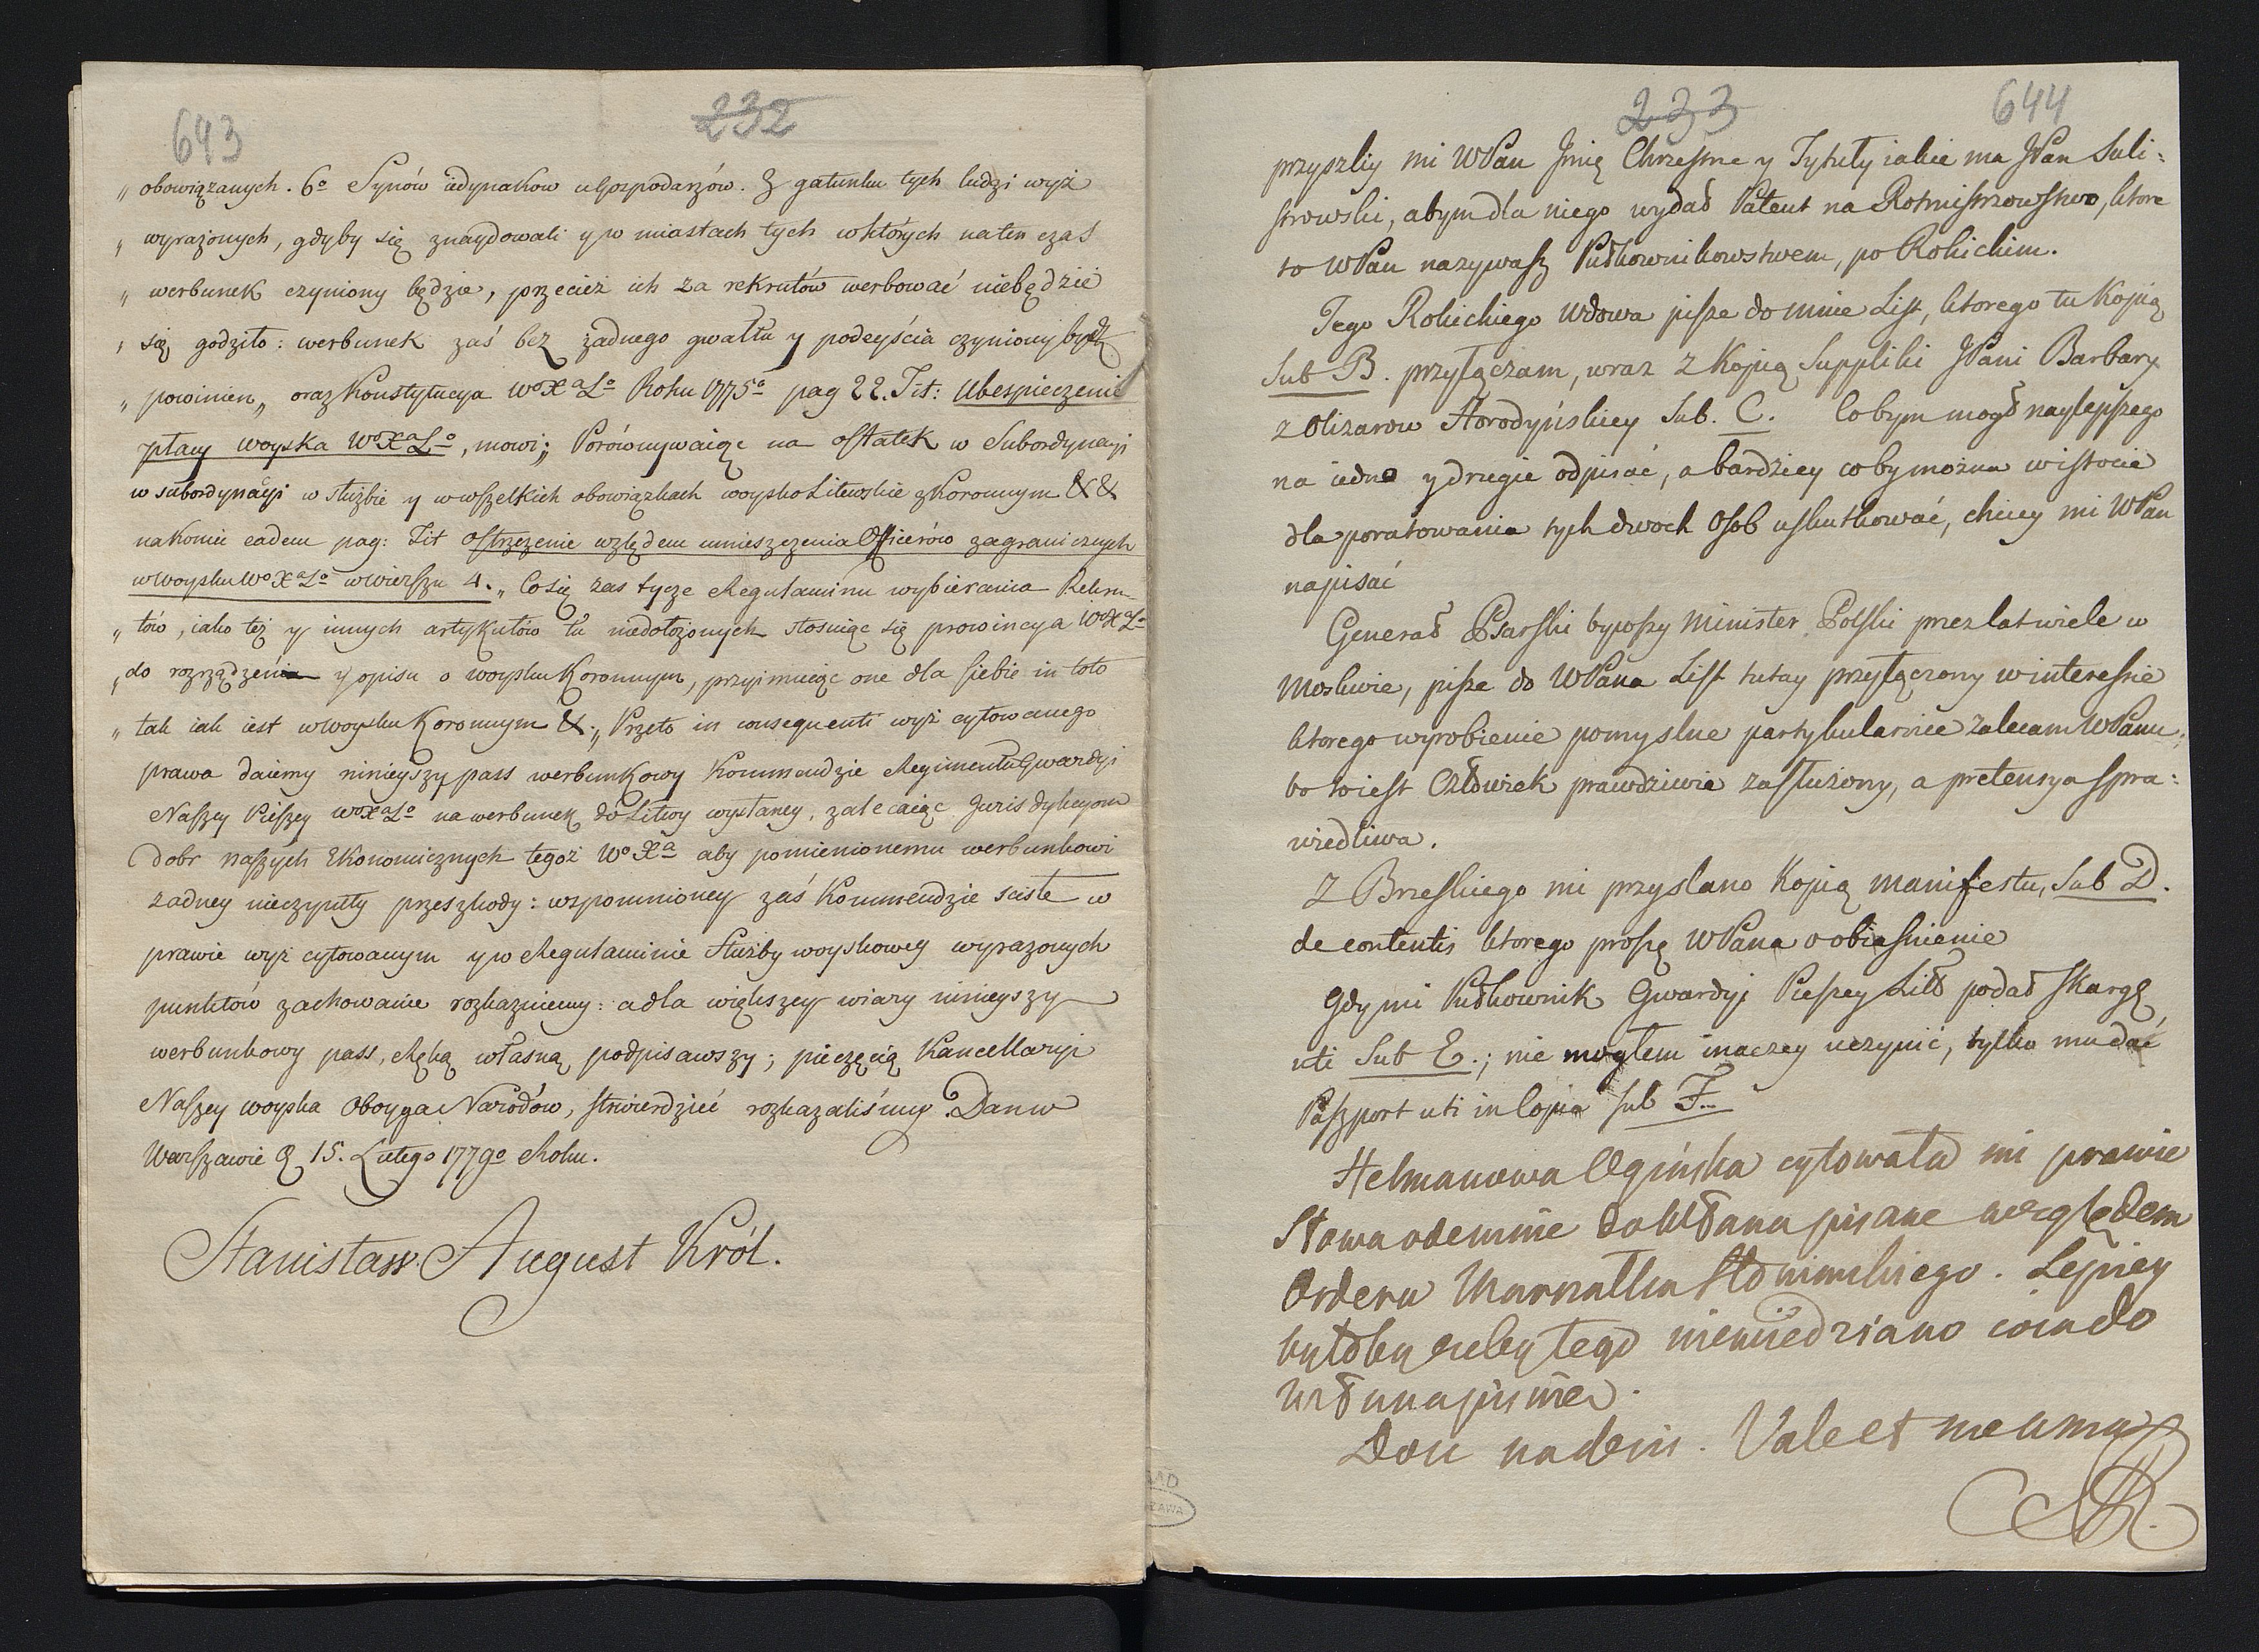 643
232
„ obowiązanych. 6o Synów iedynakow u Gospodarzów. Z gatunku tych ludzi wyż
„ wyrażonych, gdyby się znaydowali y w miastach tych w których na ten czas
„ werbunek czyniony będzie, przecież ich za rekrutów werbować niebędzie
„ się godziło: werbunek zaś bez żadnego gwałtu y podeyścia czyniony bydź
„ powinien „ oraz Konstytucya Wo Xa Lo Roku 1775o pag 22. Tit: Ubespieczenie
płacy woyska Wo Xa Lo, mowi; „ Porównywaiąc na ostatek w Subordynacyi
w subordynacyi w służbie y w wszelkich obowiązkach woysko Litewskie z Koronnym & &
nakoniec eadem pag: Tit Ostrzeżenie względem umieszczenia Officierów zagranicznych
w Woysku Wo Xa Lo w wierszu 4. „ Co się zas tycze Regulaminu wybierania Rekru-
„ tów, iako też y innych artykułów tu niedołożonych stosuiąc się prowincya Wo Xa Lo
„ do rozrządzenia y opisu o woysku Koronnym, przyimuiąc one dla siebie in toto
„ tak iak iest w Woysku Koronnym &. „ Przeto in consequenti wyż cytowanego
prawa daiemy ninieyszy pass werbunkowy Kommendzie Regimentu Gwardyi
Naszey Pieszey Wo Xa Lo na werbunek do Litwy wysłaney, zalecaiąc Jurisdykcyom
dobr naszych Ekonomicznych tegoż Wo Xa aby pomienionemu werbunkowi
żadney nieczyniły przeszkody: wspomnioney zaś Kommendzie scisłe w
prawie wyż cytowanym y w Regulaminie Służby woyskowey wyrażonych
punktów zachowanie rozkazuiemy: a dla większey wiary ninieyszy
werbunkowy pass, Ręką własną podpisawszy; pieczęcią Kancellaryi
Naszey woyska Oboyga Narodów, stwierdzić rozkazaliśmy. Dan w
Warszawie D 15. Lutego 1779o Roku.
Stanisław August Król.
233
644
przyszliy mi WPan Jmię Chrzestne y Tytuły iakie ma JPan Suli:
strowski, abym dla niego wydał Patent na Rotmistrzowstwo, ktore
to WPan nazywasz Pułkownikowstwem, po Rokickim.
Tego Rokickiego Wdowa pisze do mnie List, ktorego tu Kopią
Sub B. przyłączam, wraz z Kopią Suppliki JPani Barbary
z Olizarow Horodyńskiey Sub. C. Co bym mogł naylepszego
na iedno y drugie odpisać, a bardziey co by można w istocie
dla poratowania tych dwoch Osob uskutkować, chciey mi WPan
napisać
Generał Psarski bywszy Minister Polski przez lat wiele w
Moskwie, pisze do WPana List tutay przyłączony w interessie
ktorego wyrobienie pomyslne partykularnie zalecam WPanu;
bo to iest Człowiek prawdziwie zasłużony, a pretensya spra:
wiedliwa.
Z Brzeskiego mi przysłano Kopią manifestu, Sub D.
de contentis ktorego proszę WPana o obiasnienie
Gdy mi Pułkownik Gwardyi Pieszey Litt podał skargę
uti Sub E.; nie mogłem inaczey uczynić, tylko mu dać
Paszport uti in Copia sub F.
Hetmanowa Ogińska cytowała mi prawie
słowa odemnie do WPana pisane względem
Orderu Marszałka Słonimskiego. Lepiey
byłoby żeby tego niewiedziano co ia do
WPana piszę.
Vale et me ama
SAR.